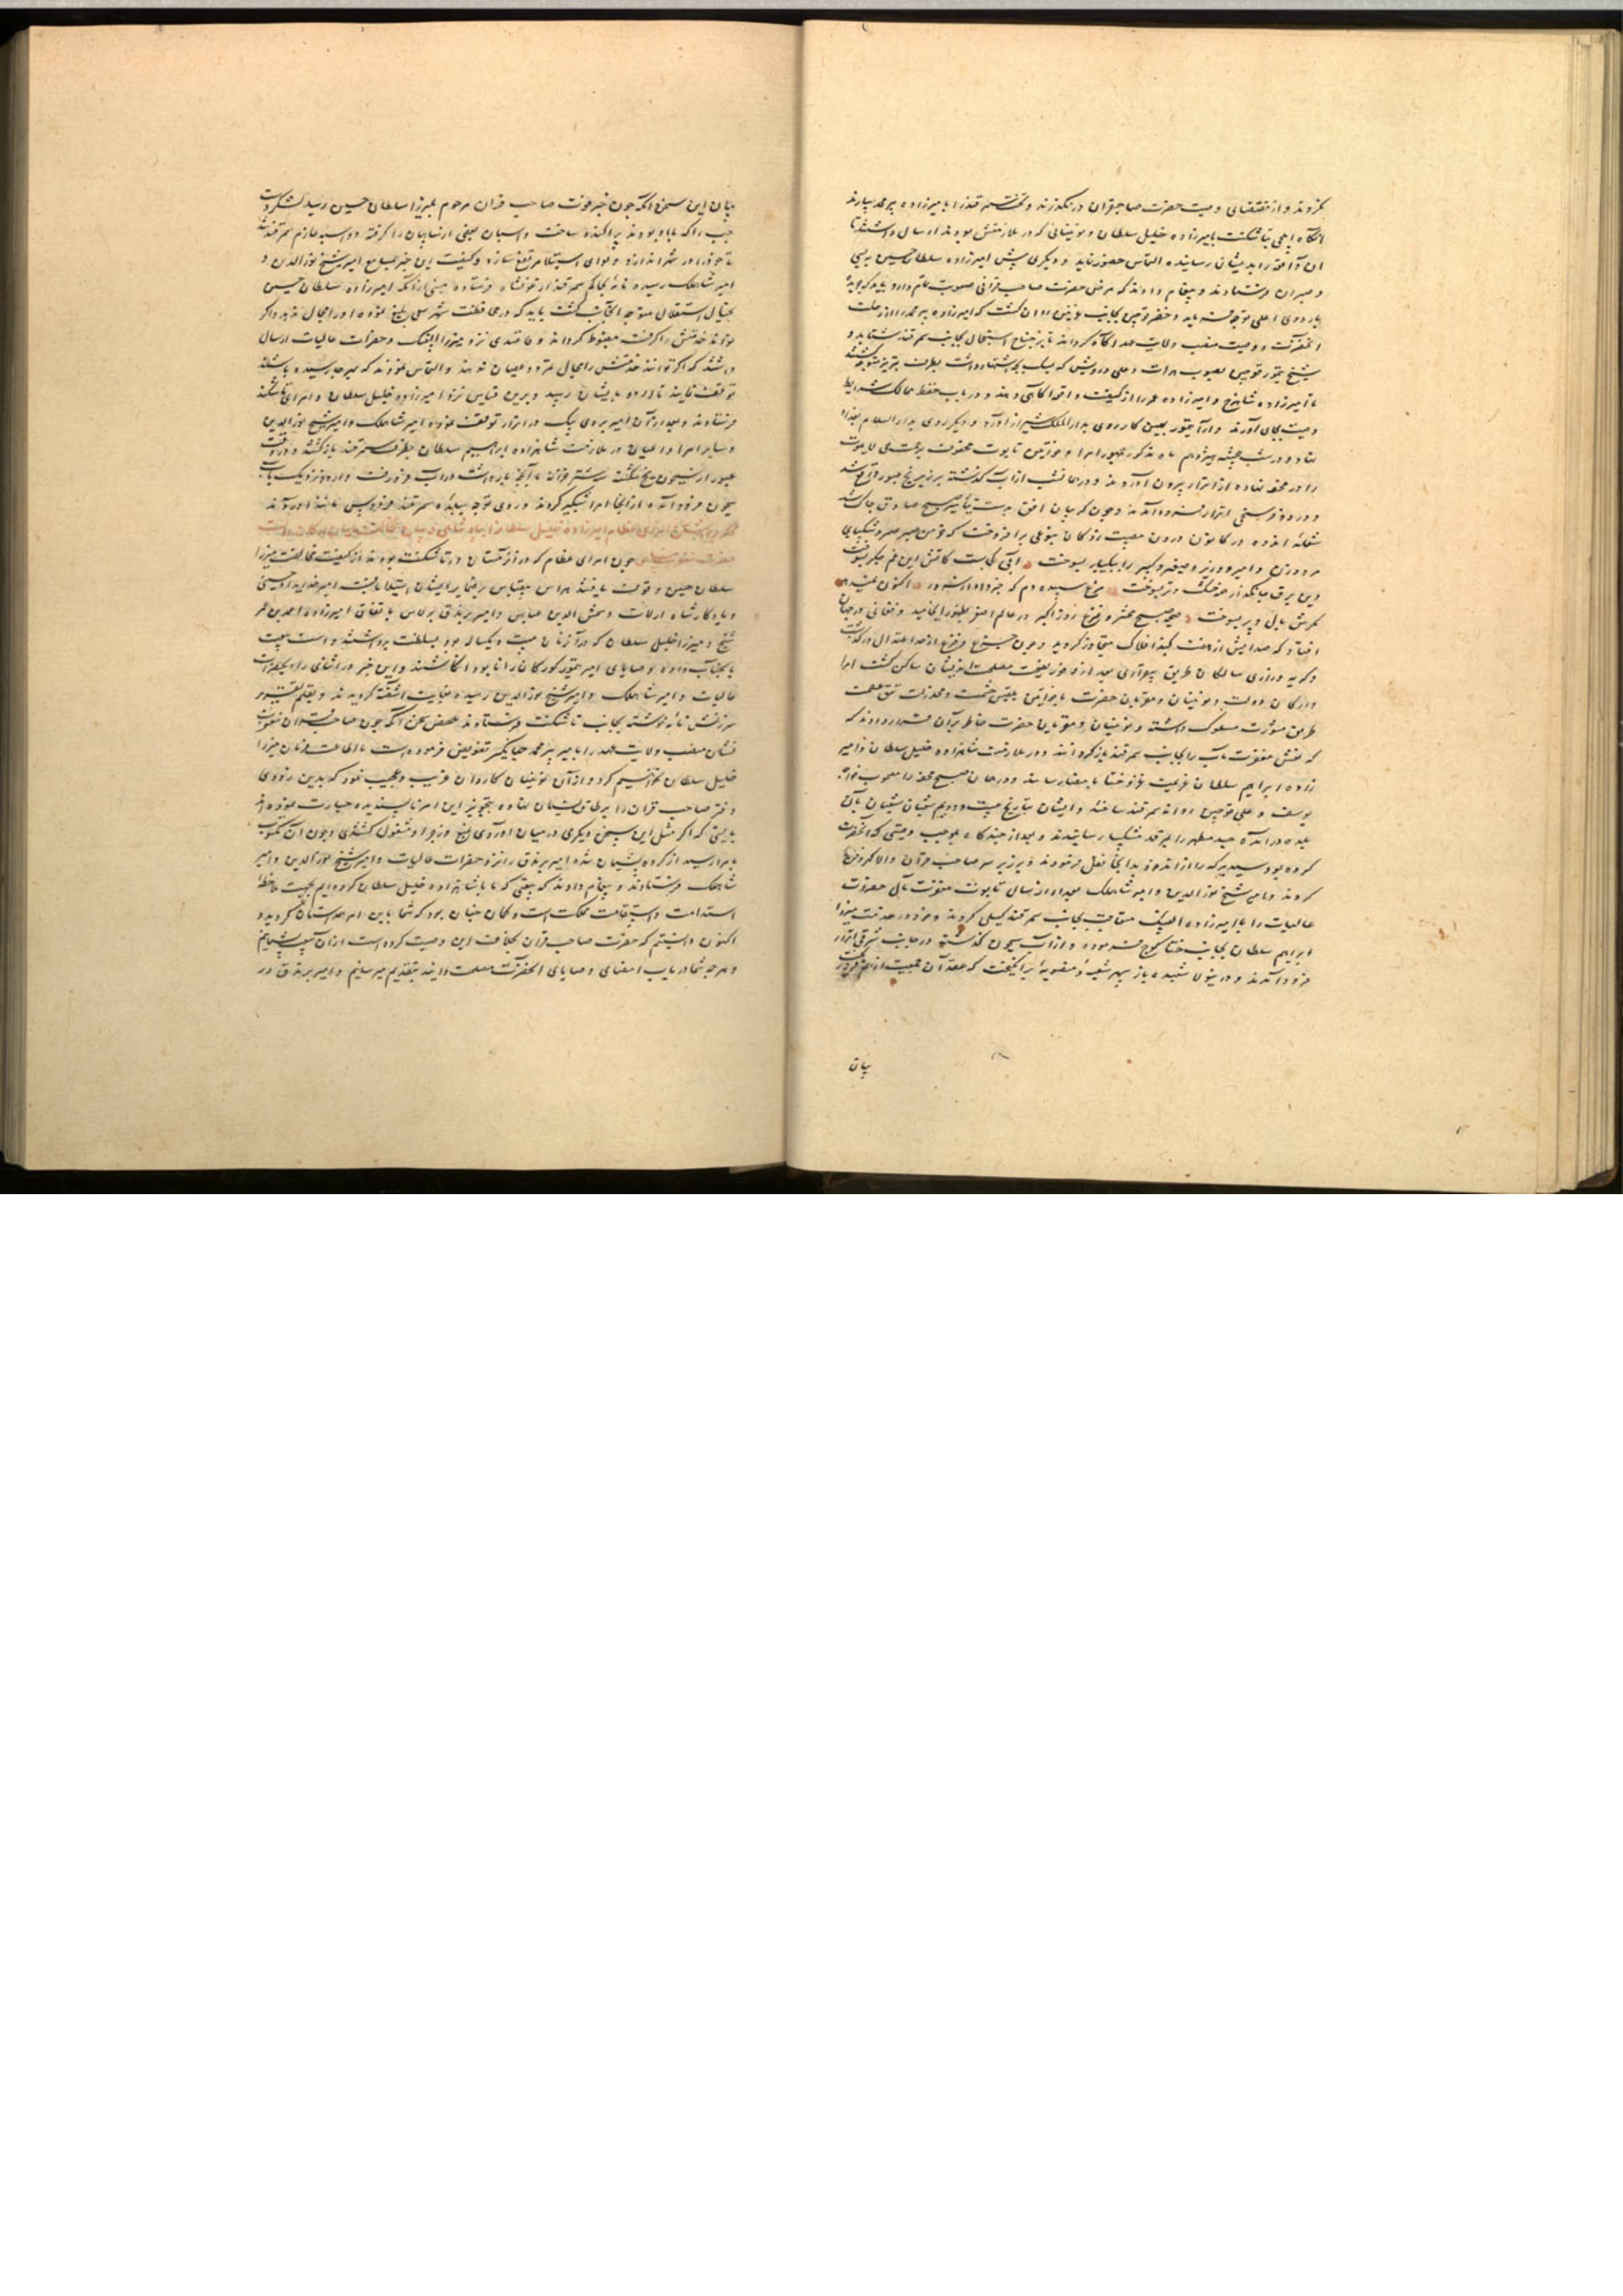 نکردند و از مقتضای وصیت حضرت صاحبقران در نگذرند و تخت سمرقند را بامیرزاده پیر محمد سپارند
انگاه ایلچی بتاشکنت بامیرزاده خلیل سلطان و نوئینانی که در ملازمتش بودند ارسال داشتند تا
ان واقعه را بدیشان رسانیده التماس حضور نماید و دیگری پیش امیرزاده سلطان حسین
و میران فرستادند و پیغام دادند که مرض حضرت صاحب قرانی صعوبت تمام دارد باید که
باردوی اعلی متوجه شوند و خضر قوچین بجانب غزنین روان گشت که امیرزاده پیر محمد را از رحلت
انحضرت و وصیت منصب ولایت عهد آگاه گرداند تا بر جناح استعجال بجانب سمرقند شتابد و
شیخ تیمور قوچین بصوب هرات و علی درویش که بیک اشتهار داشت بطرف تبریز
تا امیرزاده شاهرخ و امیرزاده عمر را از کیفیت واقعه آگاهی دهند و در باب حفظ ممالک شرایط
وصیت بجای آورند و ارا تیمور بهمین کار روی بدار الملک شیراز آورد و دیگری روی بدار السلام بغداد
نهاد و در شب پنجشنبه هژدهم ماه مذکور جمهور امرا و خواتین تابوت محفوف برحمت حی لایموت
را در محفه نهاده از اترار بیرون آوردند و در همان شب از آب گذشته بر زبر یخ عبور واقع شد
و در دو فرسخی اترار فرود آمدند و چون گریبان افق بدست تأثیر صبح صادق چاک شد
شعله اندوه در کانون درون مصیبت زدکان بنوعی برافروخت که خرمن صبر و شکیبای
مرد و زن و امیر و وزیر و صغیر و کبیر را بیکبار بسوخت آهی کجاست کاتش این غم جگر نسوخت
وین برق جانگداز چه خشک و تر نسوخت مرغ سپیده دم که جز او داد اکنون
کزش بال و پر بسوخت صیحه صبح محشر و فزع روز اکبر در عالم اصغر بظهور انجامید و فغانی در جهان
افتاد که صدایش از هفت گنبد افلاک متجاوز گردید و چون جزع و فزع از حد اعتدال درگذشت
و گریه و زاری سالکان طریق بیقراری بعد از وفور نصیحت مصلحت اندیشان ساکن گشت امرا
و ارکان دولت و نوئینان و مقربان حضرت با خواتین بلقیس حشمت و مخدرات تتق عظمت
طریق مشورت مسلوک داشته و نوئینان و مقربان حضرت خاطر بر آن قرار دادند که
که نعش مغفرت مآب را بجانب سمرقند بازگردانند و در ملازمت شاهزاده خلیل سلطان و امیر
زاده ابراهیم سلطان عزیمت غزو ختا بامضا رسانند و در همان صبح محفه را مصحوب خواجه
یوسف و علی قوچین روانه سمرقند ساختند و ایشان بتاریخ بیست و دویم شعبان
بلده در آمده جسد مطهر را بمرقد مشکبار رسانیدند و بعد از چند گاه بموجب وصیتی که آنحضرت
کرده بود سید برکه را از اندخود بدانجا نقل فرمودند و بر زیر سر صاحب قران والاگهر دفن
کردند و امیر شیخ نور الدین و امیر شاهملک بعد از ارسال تابوت مغفرت مآلی حضرات
عالیات را با امیرزاده الغ بیک متعاقب بجانب سمرقند گسیل کردند و خود در خدمت میرزا
ابراهیم سلطان بجانب ختا کوچ فرموده و از آب سیحون گذشته در جانب شرقی اترار
فرود آمدند و در این ولا شعبده باز سپهر شعبده و منصوبه برانگیخت که عقد آن جمعیت از هم فرو ریخت
بیان
بیان این سخن آنکه چون خبر فوت صاحب قران مرحوم بمیرزا سلطان حسین رسید لشکر دست
چپ را که با او بودند پراکنده ساخت و اسبان بعضی از سپاهیان را گرفته دو اسبه عازم سمرقند شد
تا خود را در شهر اندازد و لوای استیلا مرتفع سازد و کیفیت این خبر بمسامع امیر شیخ نور الدین و
امیر شاهملک رسیده نامهٔ بحاکم سمرقند ارغونشاه فرستاده مبنی از آنکه امیرزاده سلطان حسین
بخیال استقلال متوجه آنجانب گشت باید که در محافظت شهر سعی بلیغ نموده او را مجال ندهد و اگر
تواند خدمتش را گرفته مضبوط گرداند و قاصدی نزد میرزا الغ بیک و حضرات عالیات ارسال
داشتند که اگر توانند خدمتش را مجال تمرد و عصیان ندهند و التماس نمودند که بهر جا رسیده باشند
توقف نمایند تا اردو بدیشان رسد و برین قیاس نزد امیرزاده خلیل سلطان و امرای تاشکند
فرستادند و بعد از آن امیر بردی بیک در اترار توقف نموده امیر شاهملک و امیر شیخ نور الدین
و سایر امرا و اعیان در ملازمت شاهزاده ابراهیم سلطان بطرف سمرقند بازگشته و در وقت
عبور از سیحون یخ شکسته شتر خزانه با آنچه بار داشت در آب فرو رفت و اردو نزدیک بآب
سیحون فرود آمد و از آنجا امرا شبگیر کردند و روی توجه ببلده سمرقند فردوس مانند آوردند
حضرت چون امرای عظام که در زمستان در تاشکنت بودند از کیفیت مخالفت میرزا
سلطان حسین وقوف یافتند هراس بیقیاس بر ضمایر ایشان استیلا یافت امیر خداداد حسینی
و یادگار شاه ارلات و شمس الدین عباس و امیر برندق برلاس باتفاق امیرزاده احمد بن عمر
شیخ میرزا خلیل سلطان که در آن زمان بیست و یکساله بود بسلطنت برداشتند و دست بیعت
بآنجناب داده وصایای امیر تیمور گورکان را نابود انگاشتند و این خبر در اثنای راه بحضرات
عالیات و امیر شاهملک و امیر شیخ نور الدین رسیده بغایت آشفته گردیدند و بقلم تشویر
سرزنش نامه نوشته بجانب تاشکنت فرستادند ملخص سخن آنکه چون صاحب قران مغفرت
نشان منصب ولایت عهد را بامیر پیر محمد جهانگیر تفویض فرموده است ما اطاعت فرمان میرزا
خلیل سلطان نخواهیم کرد و از آن نوئینان کاردان غریب و عجیب نمود که بدین زودی
دفتر صاحب قران را بر طاق نسیان نهاده بتجویز این امر ناپسندیده جسارت نموده اند
بایستی که اگر مثل این سخن دیگری در میان آوردی بمنع و زجر او مشغول گشتندی و چون آن مکتوب
بامرا رسید از کرده پشیمان شده امیر برندق را نزد حضرات عالیات و امیر شیخ نور الدین و امیر
شاهملک فرستادند و پیغام دادند که بیعتی که ما با شاهزاده خلیل سلطان کرده ایم بجهت ملاحظه
استدامت و استقامت مملکت است و گمان چنان بود که شما باین امر همداستان گردید و
اکنون دانستیم که حضرت صاحب قران بخلاف این وصیت کرده است از آن بیعت پشیمانیم
و هر چه شما در باب امضای وصایای آنحضرت مصلحت دانید بتقدیم میرسانیم و امیر برندق در